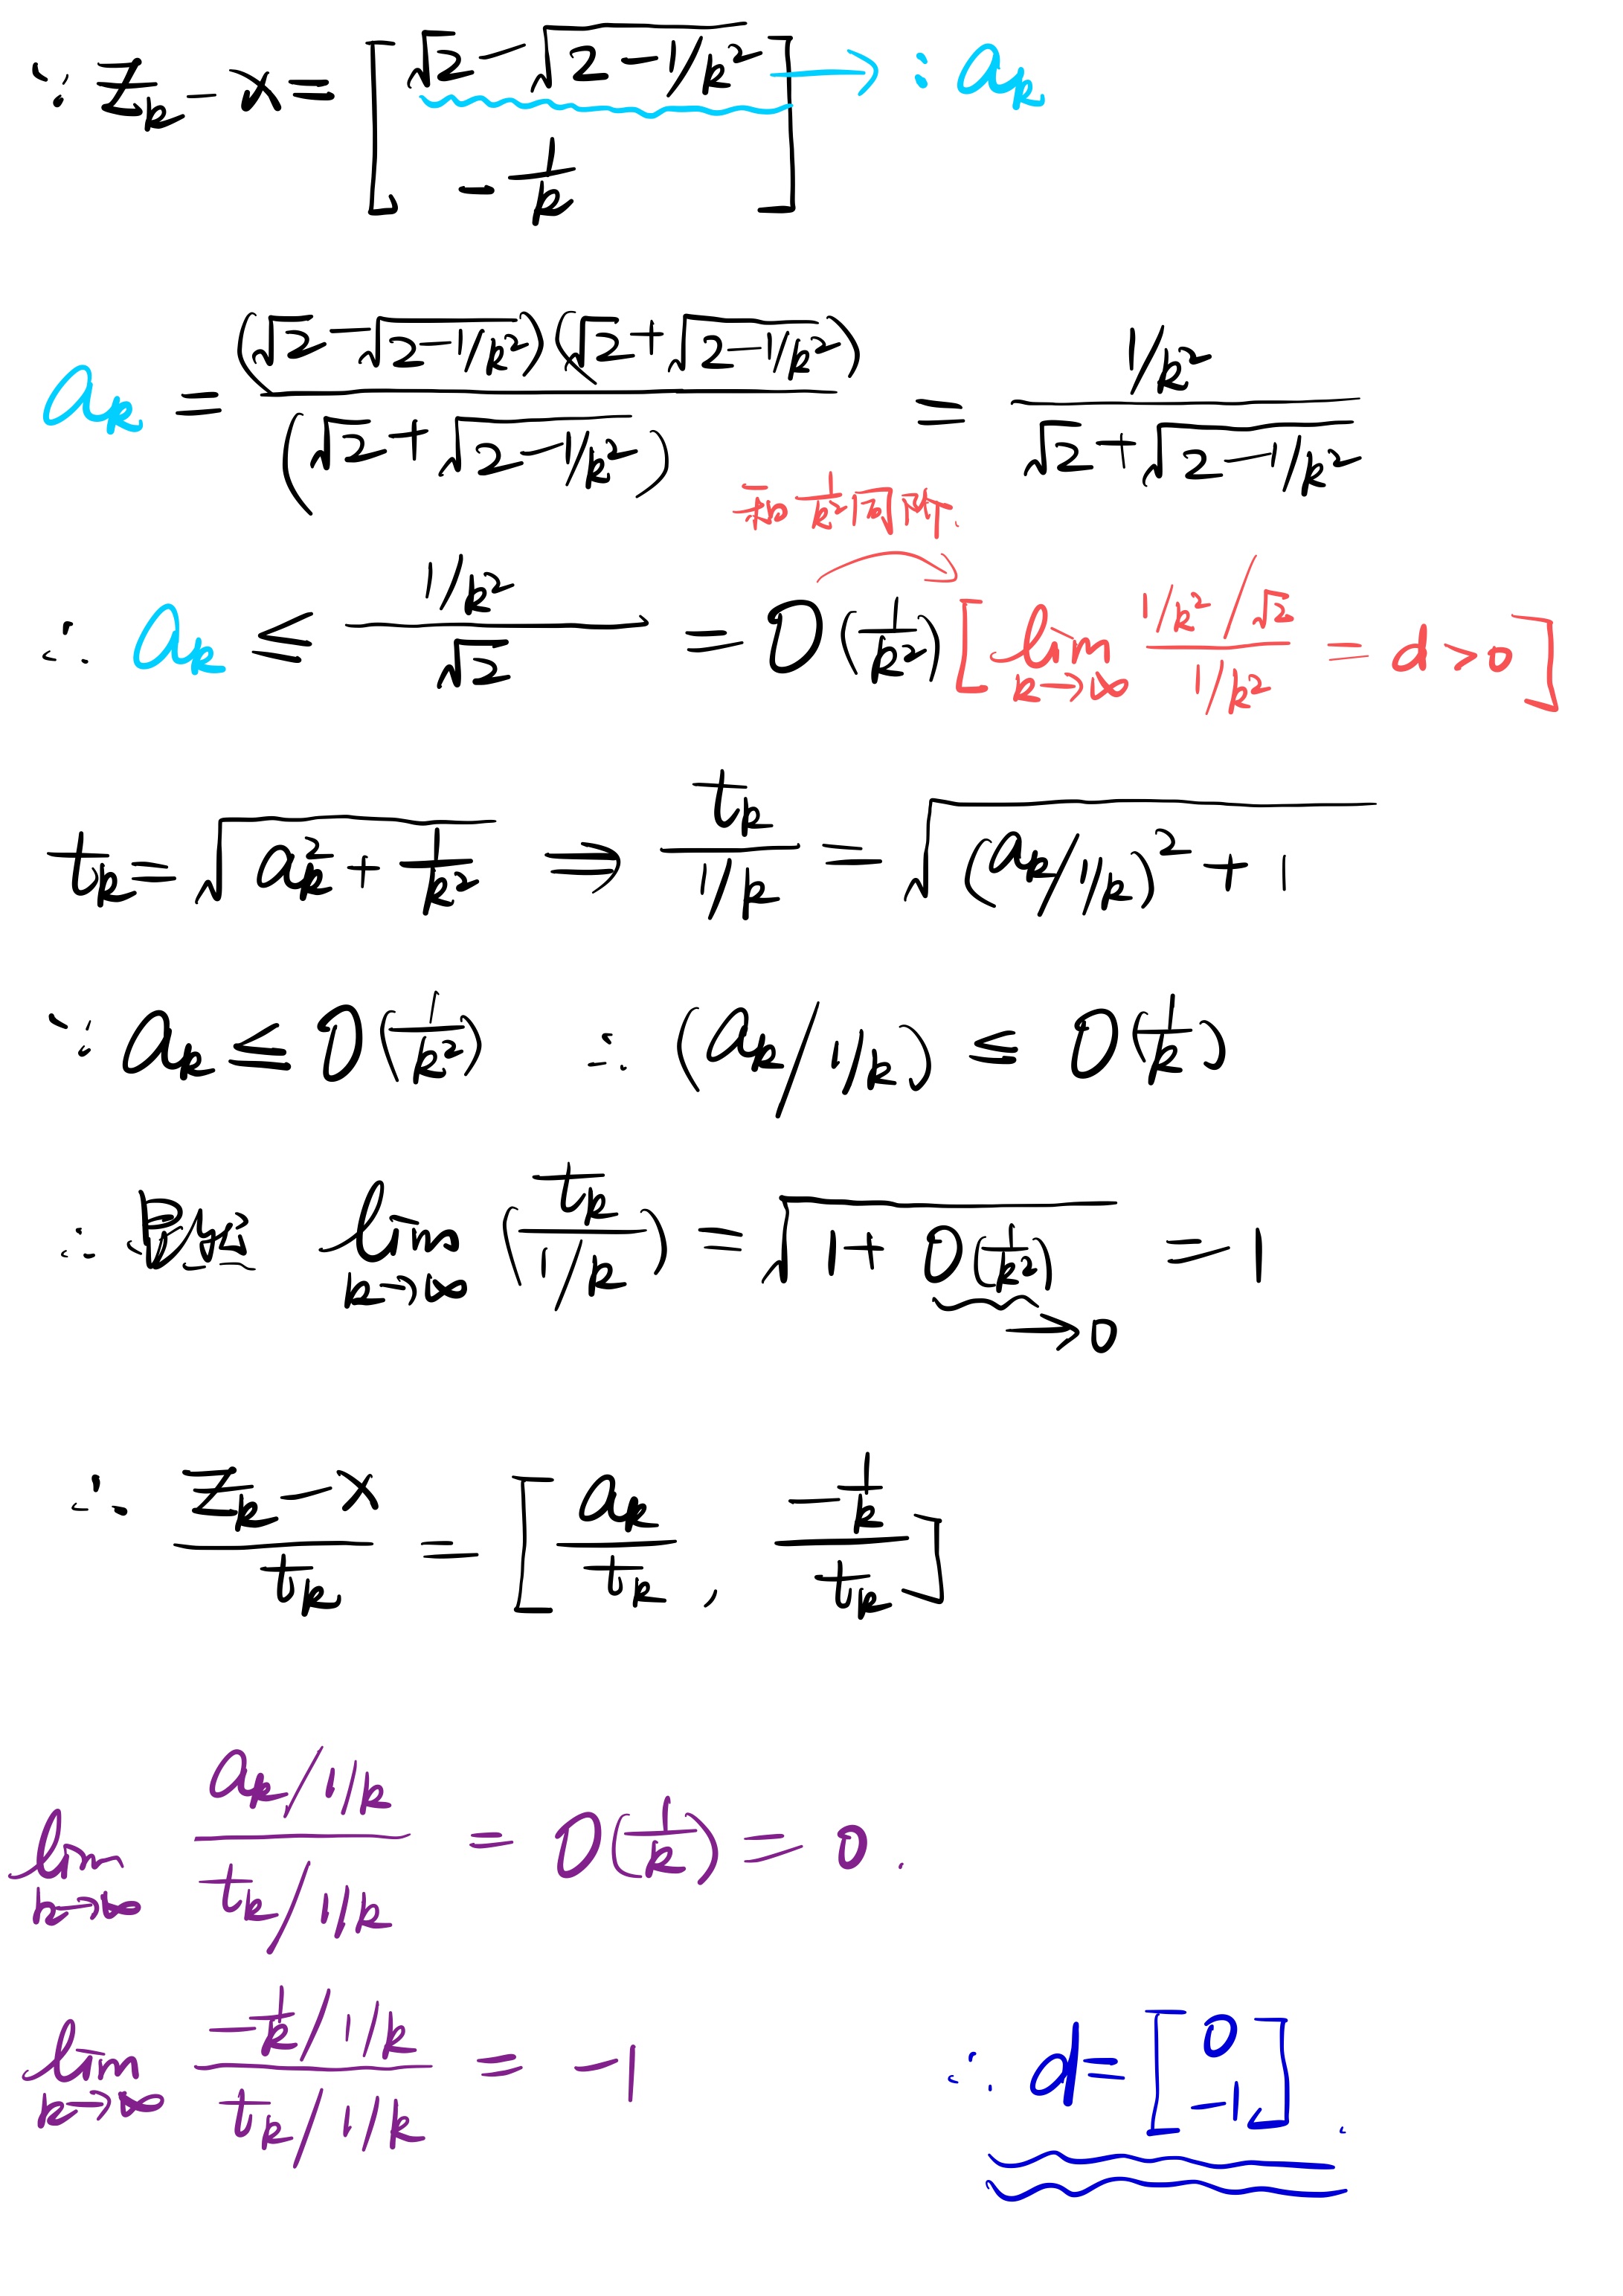 ∵ z_k − x = [ √2 − √(2 − 1/k²) ] → : a_k
[ − 1/k ]
a_k = (√2 − √(2 − 1/k²)) (√2 + √(2 − 1/k²)) / (√2 + √(2 − 1/k²)) = (1/k²) / (√2 + √(2 − 1/k²))
和 1/k² 同阶.
∴ a_k ≤ (1/k²) / √2 = O(1/k²) [ lim_{k→∞} (1/k² / √2) / (1/k²) = d > 0 ]
t_k = √(a_k² + 1/k²) ⇒ t_k / (1/k) = √((a_k / 1/k)² + 1)
∵ a_k ≤ O(1/k²) ∴ (a_k / 1/k) ≤ O(1/k)
∴ lim_{k→∞} (t_k / (1/k)) = √(1 + O(1/k²)) = 1
→ 0
∴ (z_k − x) / t_k = [ a_k / t_k , (− 1/k) / t_k ]
lim_{k→∞} (a_k / 1/k) / (t_k / 1/k) = O(1/k) = 0 .
lim_{k→∞} (− 1/k / 1/k) / (t_k / 1/k) = −1
∴ d = [ 0
−1 ] .